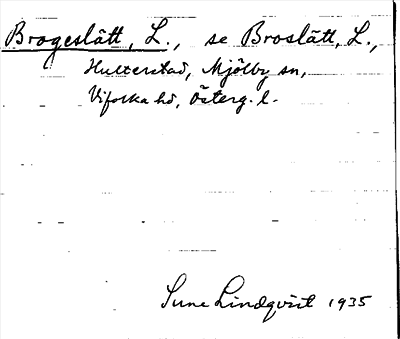 Brogeslätt, L., se Broslätt, L.,
Hulterstad, Mjölby sn,
Vifolka hd, Österg. l.
Sune Lindqvist 1935